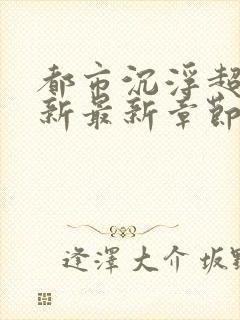 都市沉浮超
新最新章節
逢澤大介坂野